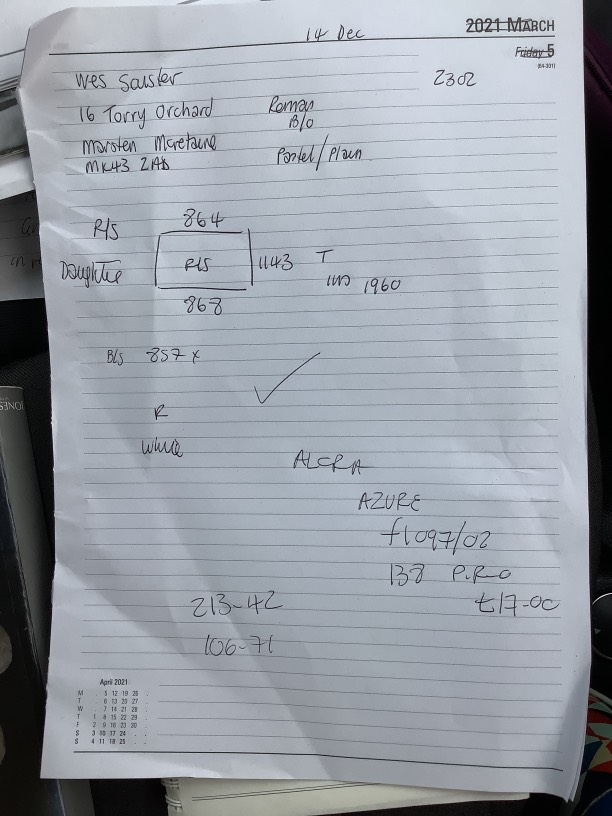 14 Dec
2021 MARCH
Friday 5
(64-301)
Wes 2302
16 Torry Orchard Roman
B/O
Marsten
MK43 2AB Pastel/Plain
R/S 864
Daughter R/S 1143 T
1960
868
B/S 857 x
R
White
ALCRA
AZURE
f1097/02
138 P.R-0
£17-00
213-42
106-71
April 2021
M 5 12 19 26
T 6 13 20 27
W 7 14 21 28
T 1 8 15 22 29
F 2 9 16 23 30
S 3 10 17 24
S 4 11 18 25
JONES